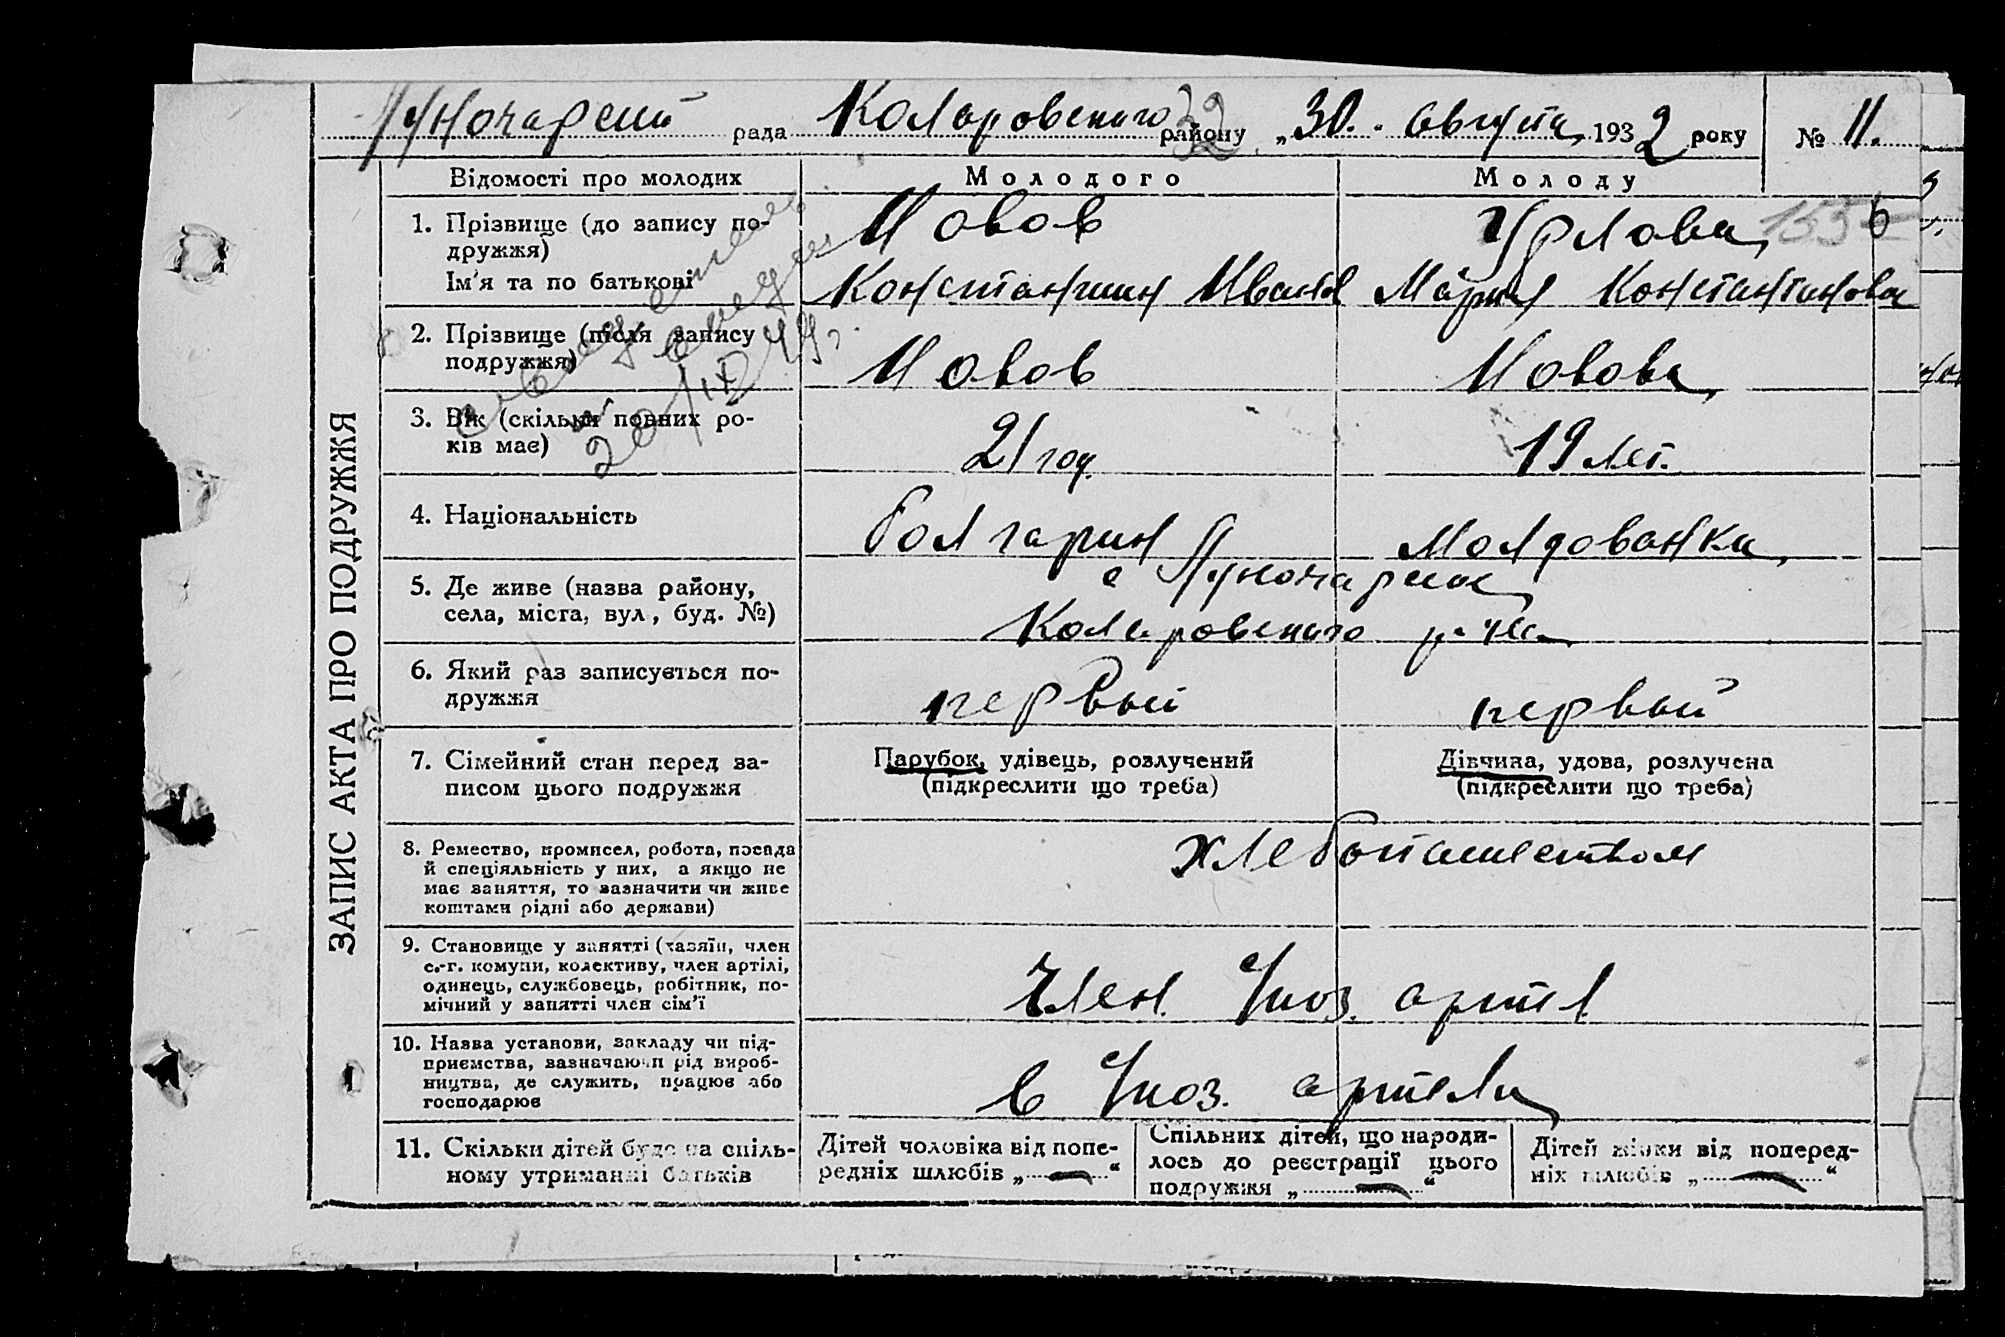 Луночарский рада Коларовского району „30." августа 1932 року № 11.
32
ЗАПИС АКТА ПРО ПОДРУЖЖЯ
Відомості про молодих Молодого Молоду
1. Прізвище (до запису по-
дружжя)
Ім'я та по батькові
Новов Урлова
Константин Иванов Мария Константинова
2. Прізвище (після запису
подружжя)
Новов Новова
3. Вік (скільки повних ро-
ків має)
21 год. 19 лет.
4. Національність
болгарин молдованка
5. Де живе (назва району,
села, міста, вул., буд. №)
с Луночарск
Коларовского р-на
6. Який раз записується по-
дружжя
первый первый
7. Сімейний стан перед за-
писом цього подружжя
Парубок, удівець, розлучений
(підкреслити що треба)
Дівчина, удова, розлучена
(підкреслити що треба)
8. Ремество, промисел, робота, посада
й спеціяльність у них, а якщо не
має заняття, то зазначити чи живе
коштами рідні або держави)
хлебопашеством
9. Становище у занятті (хазяїн, член
с.-г. комуни, колективу, член артілі,
одинець, службовець, робітник, по-
мічний у занятті член сім'ї
Член. артел
10. Назва установи, закладу чи під-
приємства, зазначаючи рід вироб-
ництва, де служить, працює або
господарює
в артели
11. Скільки дітей буде на спіль-
ному утриманні батьків
Дітей чоловіка від попе-
редніх шлюбів „—"
Спільних дітей, що народи-
лось до реєстрації цього
подружжя „—"
Дітей жінки від поперед-
ніх шлюбів „—"